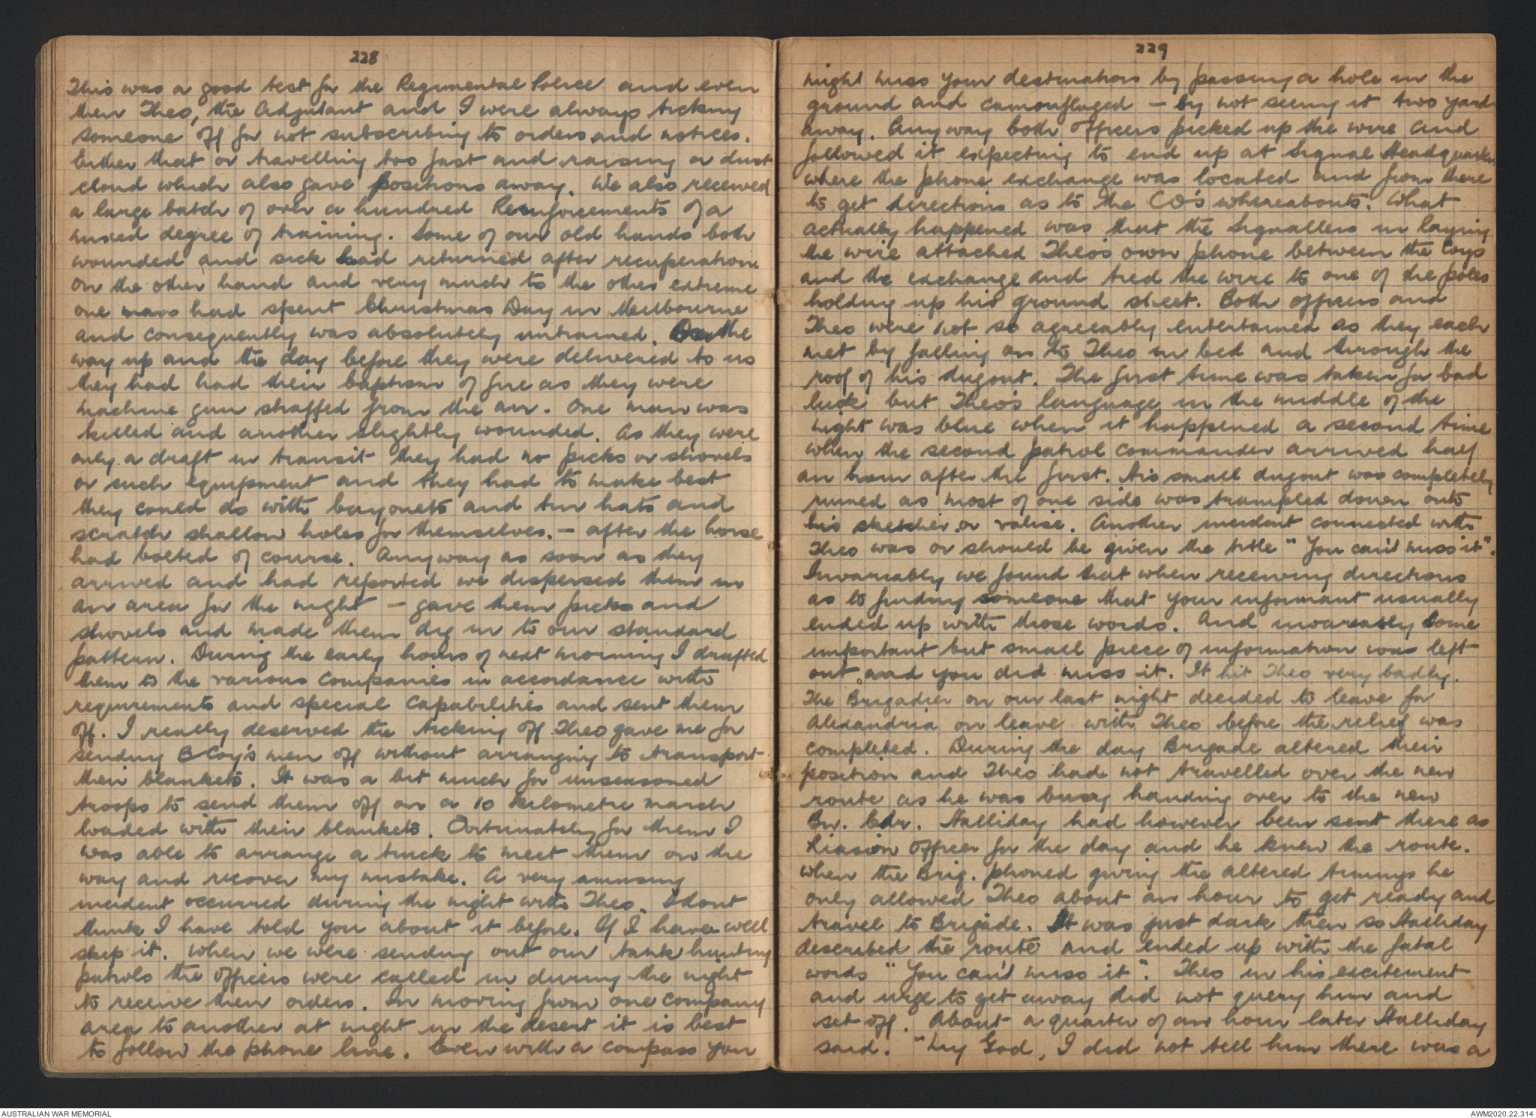 228
This was a good test for the Regimental Police and even
then Theo, the Adjutant and I were always ticking
someone off for not subscribing to orders and notices.
Either that or travelling too fast and raising a dust
cloud which also gave positions away. We also received
a large batch of over a hundred Reinforcements of a
mixed degree of training. Some of our old hands both
wounded and sick had returned after recuperation
on the other hand and very much to the other extreme
one man had spent Christmas Day in Melbourne
and consequently was absolutely untrained. On the
way up and the day before they were delivered to us
they had had their baptism of fire as they were
machine gun straffed from the air. One man was
killed and another slightly wounded. As they were
only a draft in transit they had no picks or shovels
or such equipment and they had to make best
they could do with bayonets and tin hats and
scratch shallow holes for themselves. – after the horse
had bolted of course. Anyway as soon as they
arrived and had reported we dispersed them in
an area for the night – gave them picks and
shovels and made them dig in to our standard
pattern. During the early hours of next morning I drafted
them to the various companies in accordance with
requirements and special capabilities and sent them
off. I really deserved the ticking off Theo gave me for
sending B Coy's men off without arranging to transport
their blankets. It was a bit much for unseasoned
troops to send them off on a 10 kilometre march
loaded with their blankets. Fortunately for them I
was able to arrange a truck to meet them on the
way and recover my mistake. A very amusing
incident occurred during the night with Theo. I dont
think I have told you about it before. If I have well
skip it. When we were sending out our tank hunting
patrols the officers were called in during the night
to receive their orders. In moving from one company
area to another at night in the desert it is best
to follow the phone line. Even with a compass you
229
might miss your destination by passing a hole in the
ground and camouflaged – by not seeing it two yards
away. Anyway both officers picked up the wire and
followed it expecting to end up at Signal Headquarters
where the phone exchange was located and from there
to get directions as to the CO's whereabouts. What
actually happened was that the Signallers in laying
the wire attached Theo's own phone between the Coys
and the exchange and tied the wire to one of the poles
holding up his ground sheet. Both officers and
Theo were not so agreeably entertained as they each
met by falling on to Theo in bed and through the
roof of his dugout. The first time was taken for bad
luck but Theo's language in the middle of the
night was blue when it happened a second time
when the second patrol commander arrived half
an hour after the first. His small dugout was completely
ruined as most of one side was trampled down onto
his stretcher or valise. Another incident connected with
Theo was or should be given the title "You can't miss it".
Invariably we found that when receiving directions
as to finding someone that your informant usually
ended up with those words. And invariably some
important but small piece of information was left
out and you did miss it. It hit Theo very badly.
The Brigadier on our last night decided to leave for
Alexandria on leave with Theo before the relief was
completed. During the day Brigade altered their
position and Theo had not travelled over the new
route as he was busy handing over to the new
Bn. Cdr. Halliday had however been sent there as
Liaison Officer for the day and he knew the route.
When the Brig. phoned giving the altered timings he
only allowed Theo about an hour to get ready and
travel to Brigade. It was just dark then so Halliday
described the route and ended up with the fatal
words "You can't miss it". Theo in his excitement
and urge to get away did not query him and
set off. About a quarter of an hour later Halliday
said. "My God, I did not tell him there was a
AUSTRALIAN WAR MEMORIAL
AWM2020.22.314